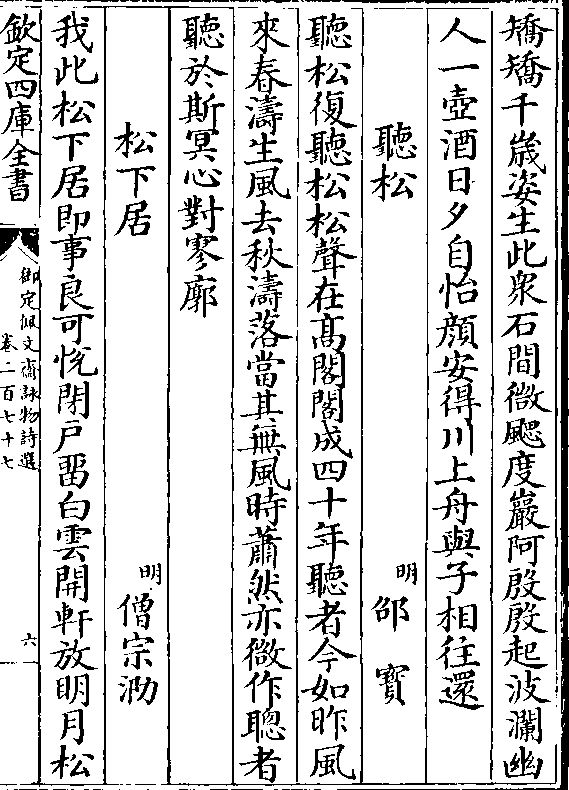 矯矯千歳姿生此衆石間微颸度巖阿殷殷起波瀾幽
人一壺酒日夕自怡顔安得川上舟與子相往還
聽松
明 邵寳
聽松復聽松松聲在髙閣閣成四十年聽者今如昨風
來春濤生風去秋濤落當其無風時蕭然亦微作聰者
聽於斯冥心對寥廓
松下居
明 僧宗泐
我此松下居即事良可悅閉戸畱白雲開軒放明月松
欽定四庫全書
御定佩文齋詠物詩選
卷二百七十七
六